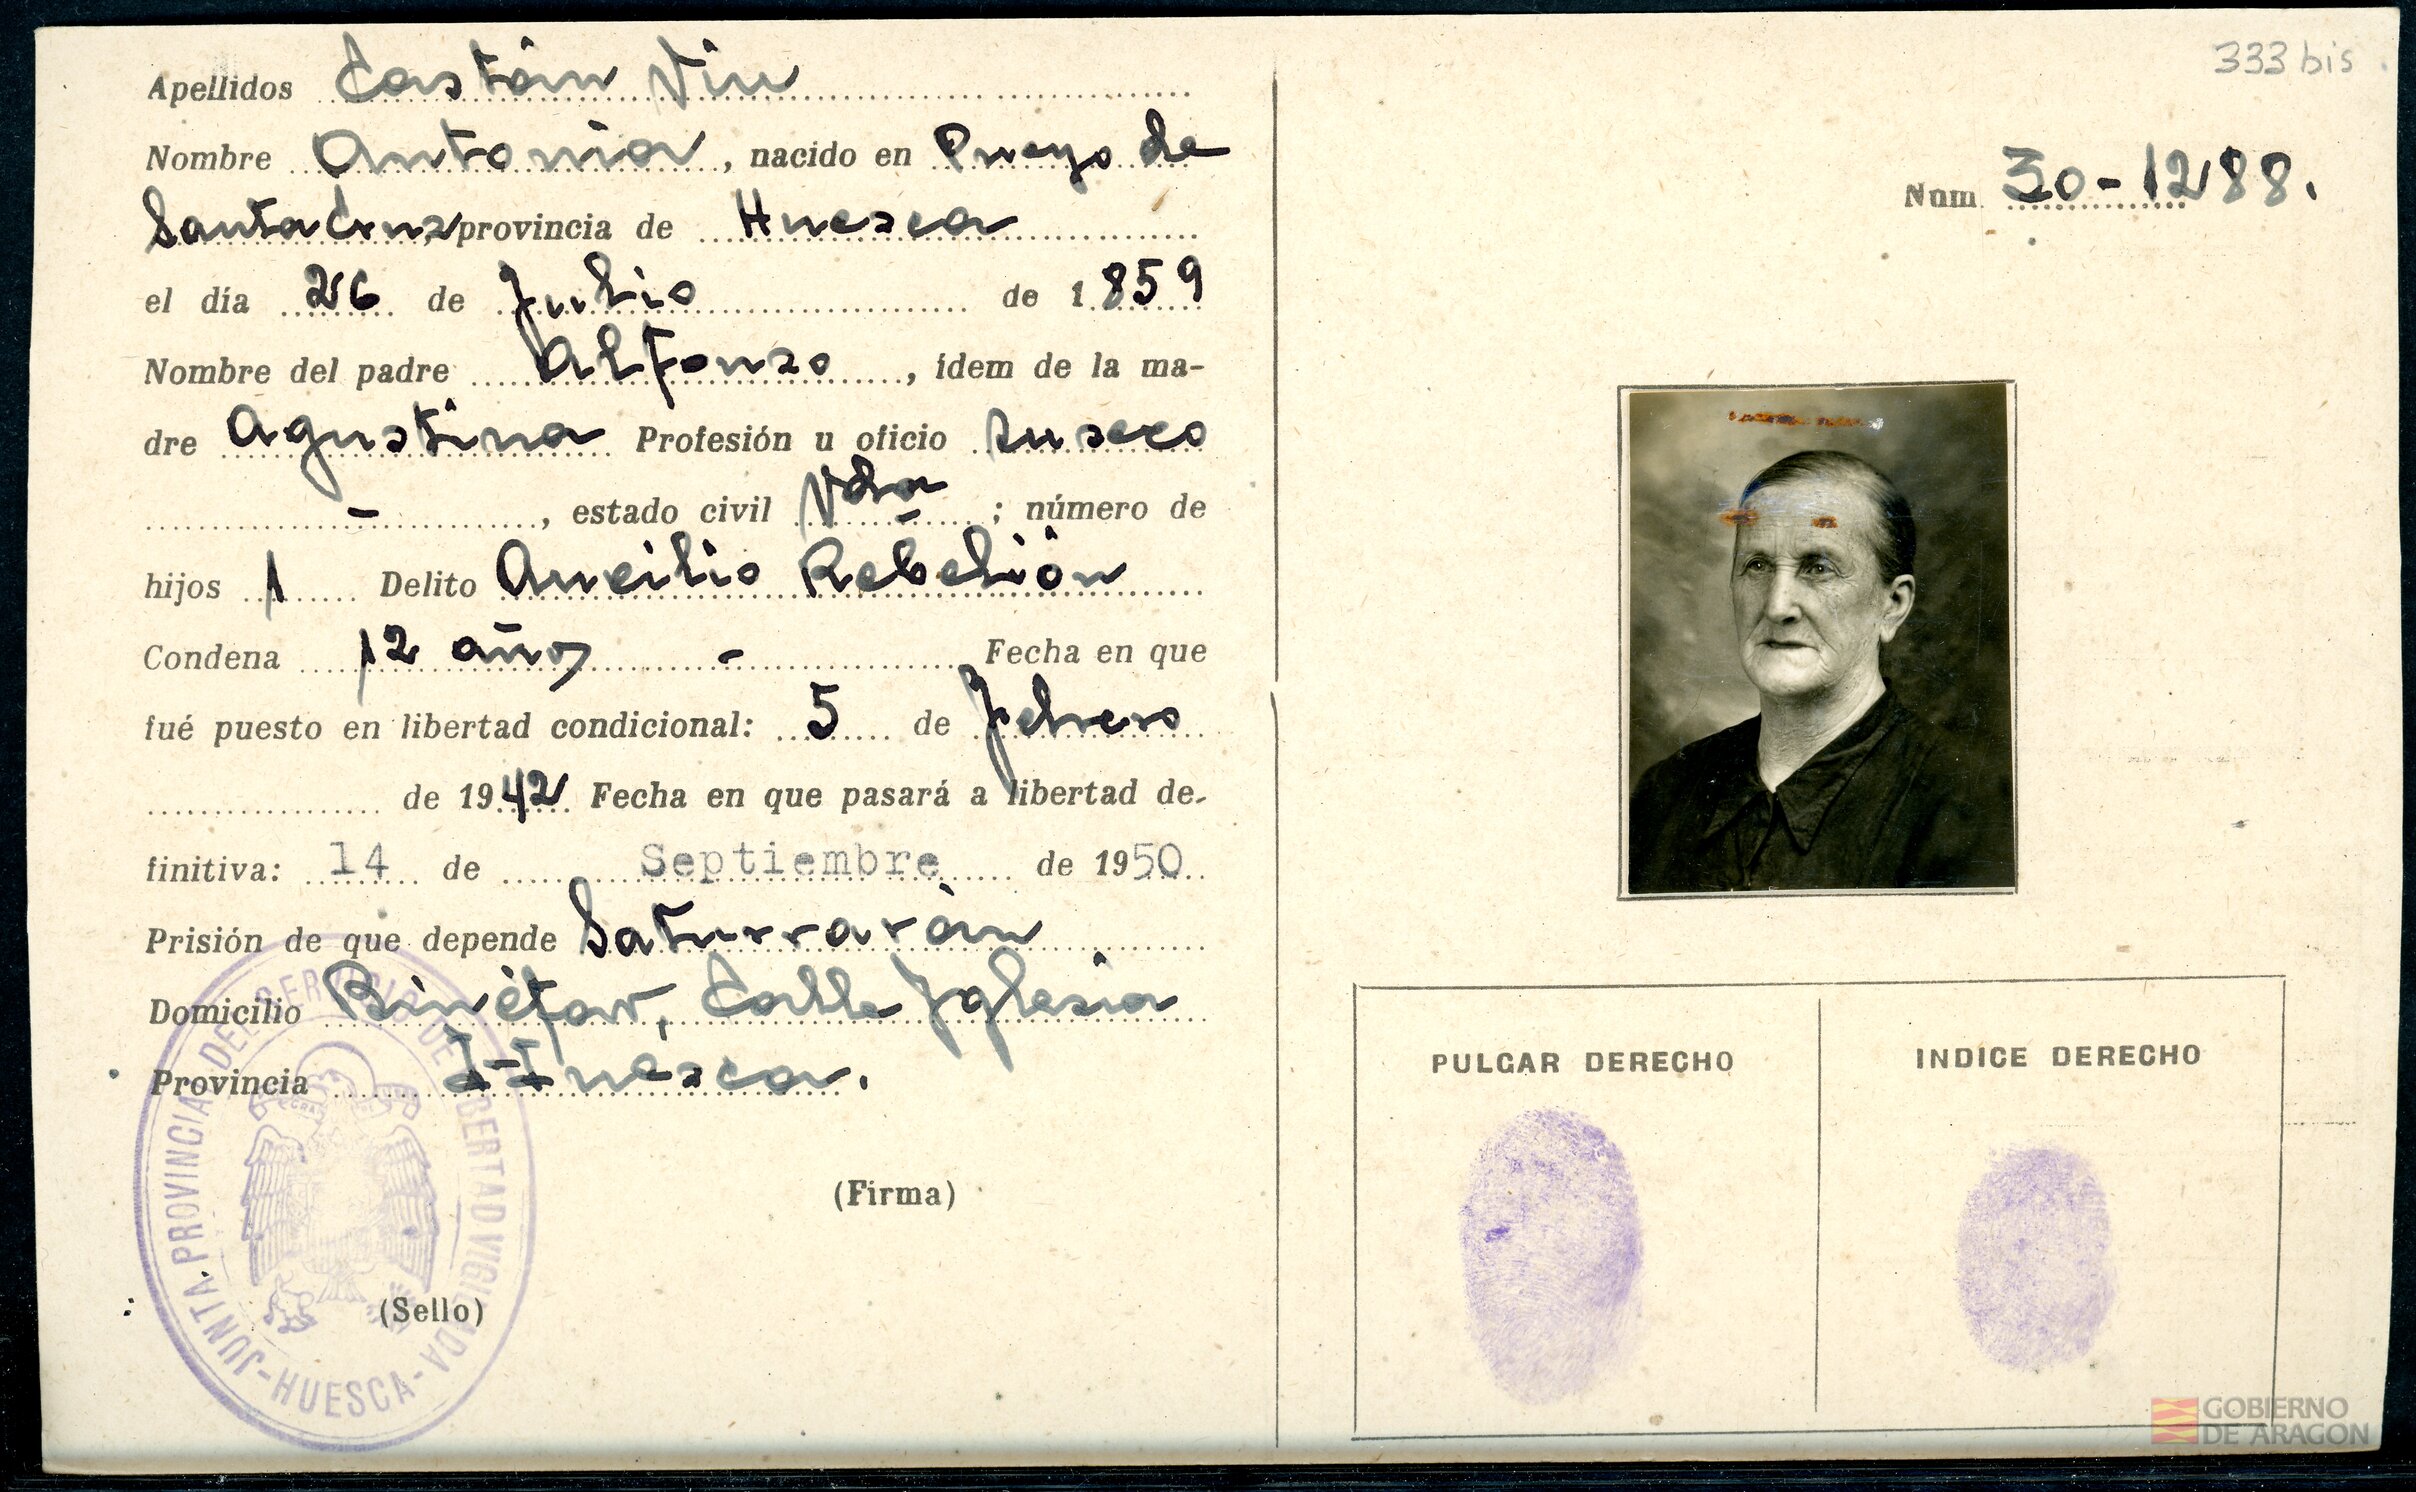 333 bis
Apellidos Castán Viu
Nombre Antonia, nacido en Pueyo de
Santa Cruz provincia de Huesca
el día 26 de Julio de 1859
Nombre del padre Alfonso, ídem de la ma-
dre Agustina Profesión u oficio su sexo
-, estado civil Vda; número de
hijos 1 Delito Auxilio Rebelión
Condena 12 años - Fecha en que
fué puesto en libertad condicional: 5 de Febrero
de 1942 Fecha en que pasará a libertad de-
finitiva: 14 de Septiembre de 1950
Prisión de que depende Saturrarán
Domicilio Binéfar, Calle Iglesia
Provincia Huesca.
(Firma)
(Sello)
JUNTA PROVINCIAL DEL SERVICIO DE LIBERTAD VIGILADA
-HUESCA-
Num 30-1288.
PULGAR DERECHO
INDICE DERECHO
GOBIERNO
DE ARAGON